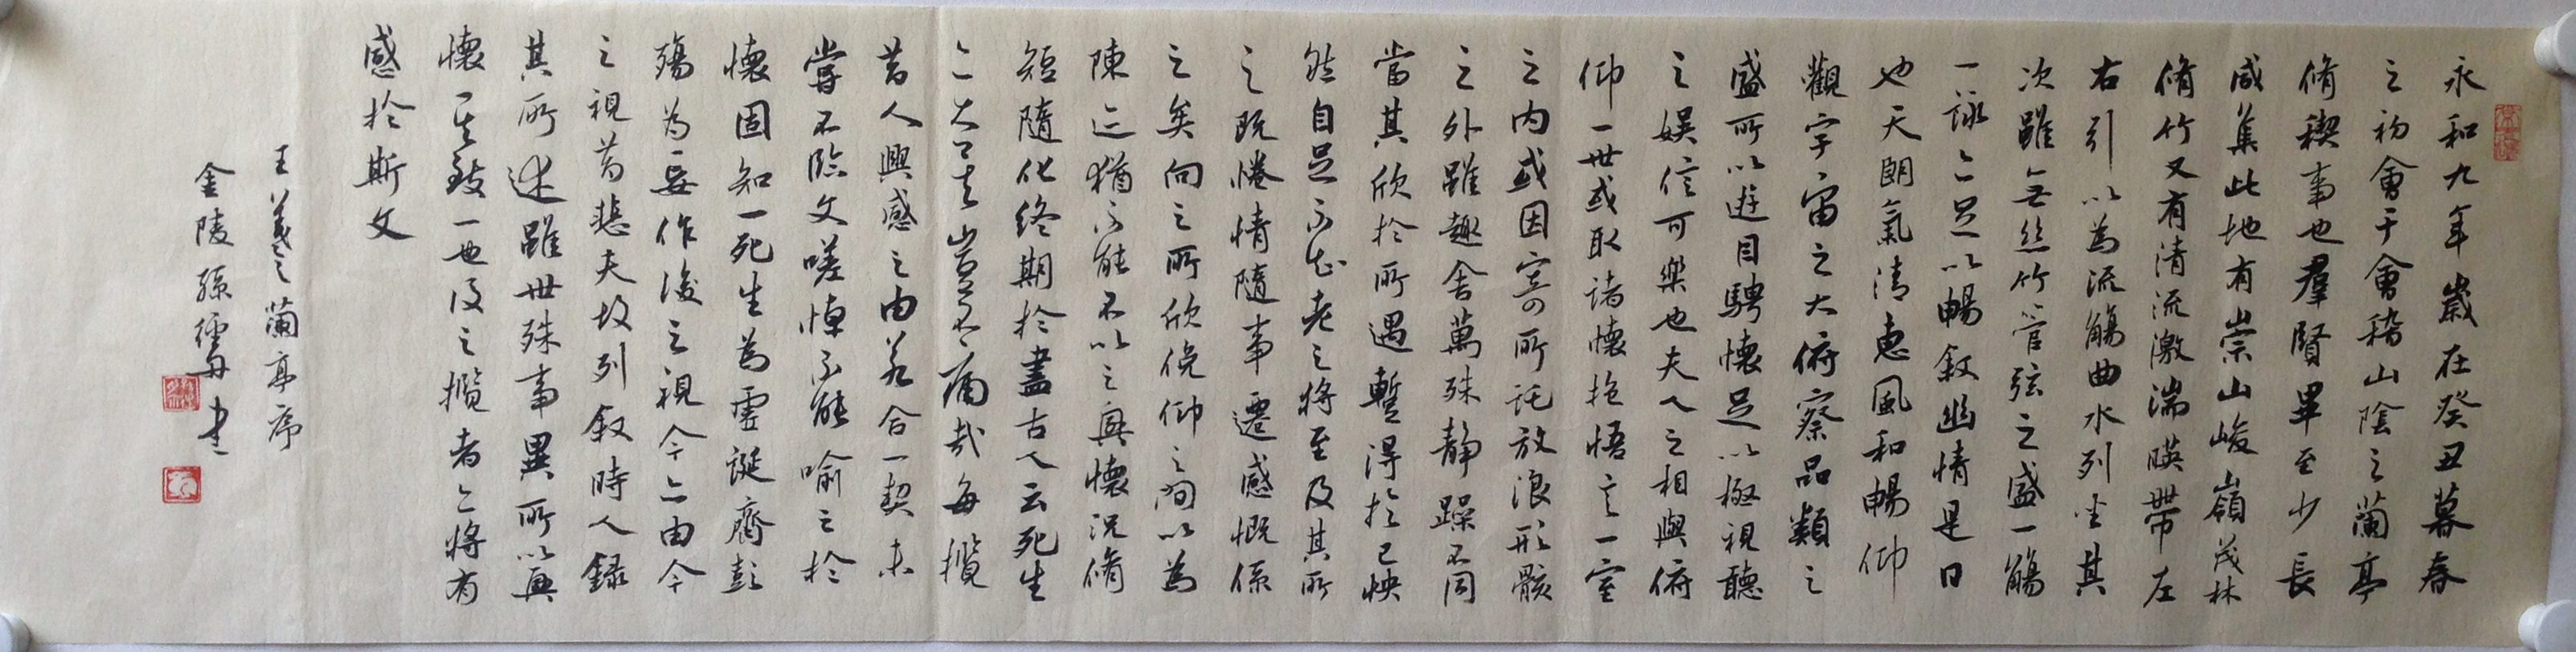 永和九年歲在癸丑暮春
之初會于會稽山陰之蘭亭
脩稧事也羣賢畢至少長
咸集此地有崇山峻嶺茂林
脩竹又有清流激湍暎帶左
右引以為流觴曲水列坐其
次雖無絲竹管弦之盛一觴
一詠亦足以暢敘幽情是日
也天朗氣清惠風和暢仰
觀宇宙之大俯察品類之
盛所以遊目騁懷足以極視聽
之娛信可樂也夫人之相與俯
仰一世或取諸懷抱悟言一室
之內或因寄所託放浪形骸
之外雖趣舍萬殊靜躁不同
當其欣於所遇暫得於己怏
然自足不知老之將至及其所
之既惓情隨事遷感慨係
之矣向之所欣俛仰之間以為
陳迹猶不能不以之興懷況脩
短隨化終期於盡古人云死生
亦大矣豈不痛哉每攬
昔人興感之由若合一契未
嘗不臨文嗟悼不能喻之於
懷固知一死生為虛誕齊彭
殤為妄作後之視今亦由今
之視昔悲夫故列敘時人錄
其所述雖世殊事異所以興
懷其致一也後之攬者亦將有
感於斯文
王羲之蘭亭序
金陵孫儒丹書